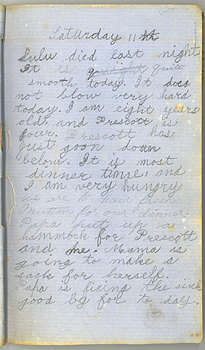 Saturday 11th
Lulu died last night
It is quite
smooth today. It does
not blow very hard
today. I am eight years
old and Prescott is
four. Prescott has
just goon down
below. It is most
dinner time and
I am very hungry
we are to have
mutton for our dinner
Papa put up a
hammock for Prescott
and me. Mama is
going to make a
sack for herself.
Papa is fixing the sink
good by for to day.